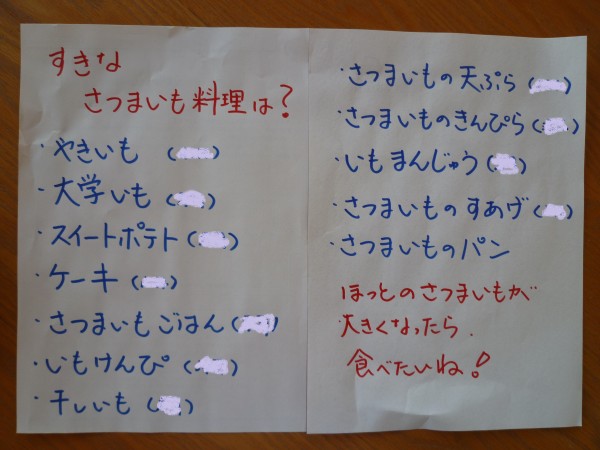 すきな
さつまいも料理は?
・やきいも ( )
・大学いも ( )
・スイートポテト ( )
・ケーキ ( )
・さつまいもごはん ( )
・いもけんぴ ( )
・干しいも ( )
・さつまいもの天ぷら ( )
・さつまいものきんぴら ( )
・いもまんじゅう ( )
・さつまいものすあげ ( )
・さつまいものパン
ほっとのさつまいもが
大きくなったら、
食べたいね!